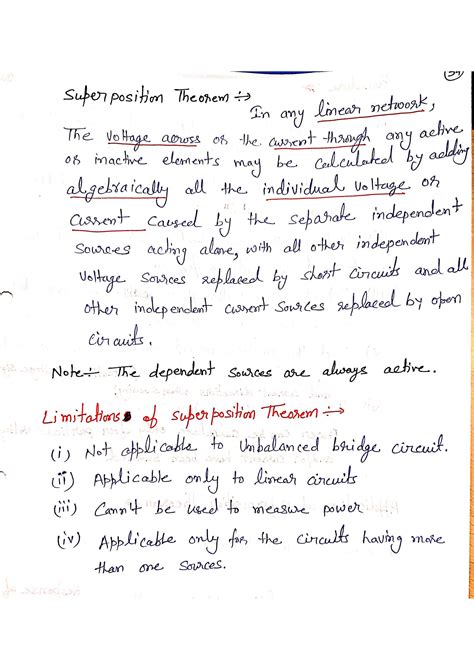 34
Superposition Theorem :→
In any linear network,
The voltage across or the current through any active
or inactive elements may be calculated by adding
algebraically all the individual voltage or
current caused by the separate independent
sources acting alone, with all other independent
voltage sources replaced by short circuits and all
other independent current sources replaced by open
circuits.
Note:- The dependent sources are always active.
Limitations of Superposition Theorem :→
(i) Not applicable to Unbalanced bridge circuit.
(ii) Applicable only to linear circuits
(iii) Cann't be used to measure power.
(iv) Applicable only for the circuits having more
than one sources.